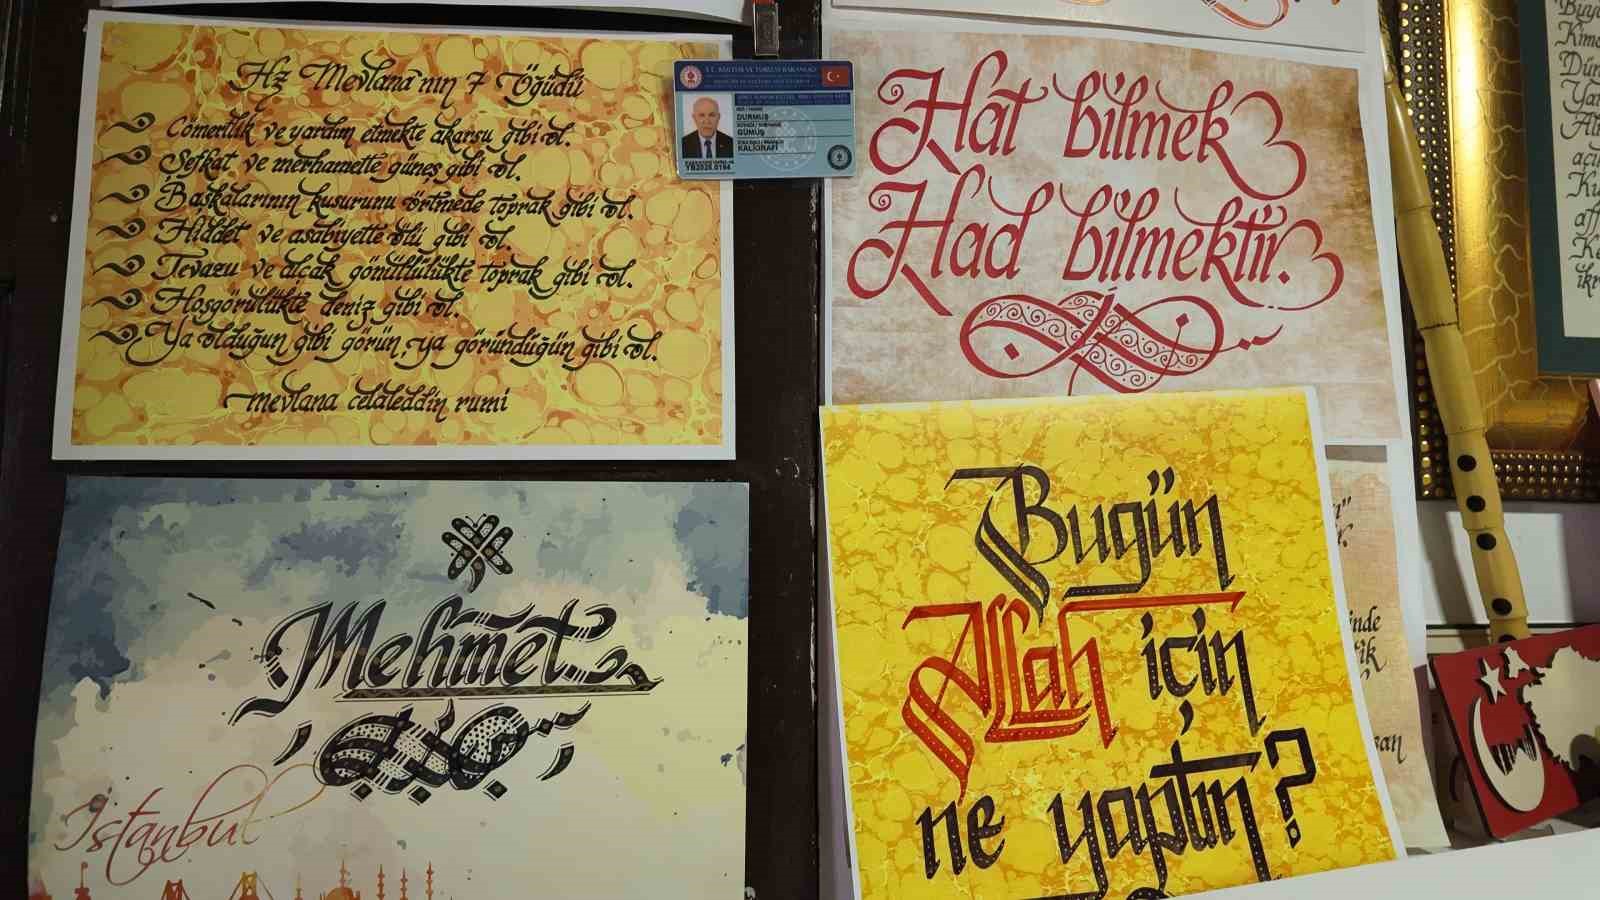 Hz Mevlana'nın 7 Öğüdü
Cömertlik ve yardım etmekte akarsu gibi ol.
Şefkat ve merhamette güneş gibi ol.
Başkalarının kusurunu örtmede toprak gibi ol.
Hiddet ve asabiyette ölü gibi ol.
Tevazu ve alçak gönüllülükte toprak gibi ol.
Hoşgörülükte deniz gibi ol.
Ya olduğun gibi görün, ya göründüğün gibi ol.
mevlana celaleddin rumi
T.C. KÜLTÜR VE TURİZM BAKANLIĞI
DURMUŞ
GÜMÜŞ
KALİGRAFİ
YB2025.0194
Hat bilmek
Had bilmektir.
Mehmet
İstanbul
Bugün
Allah için
ne yaptın?